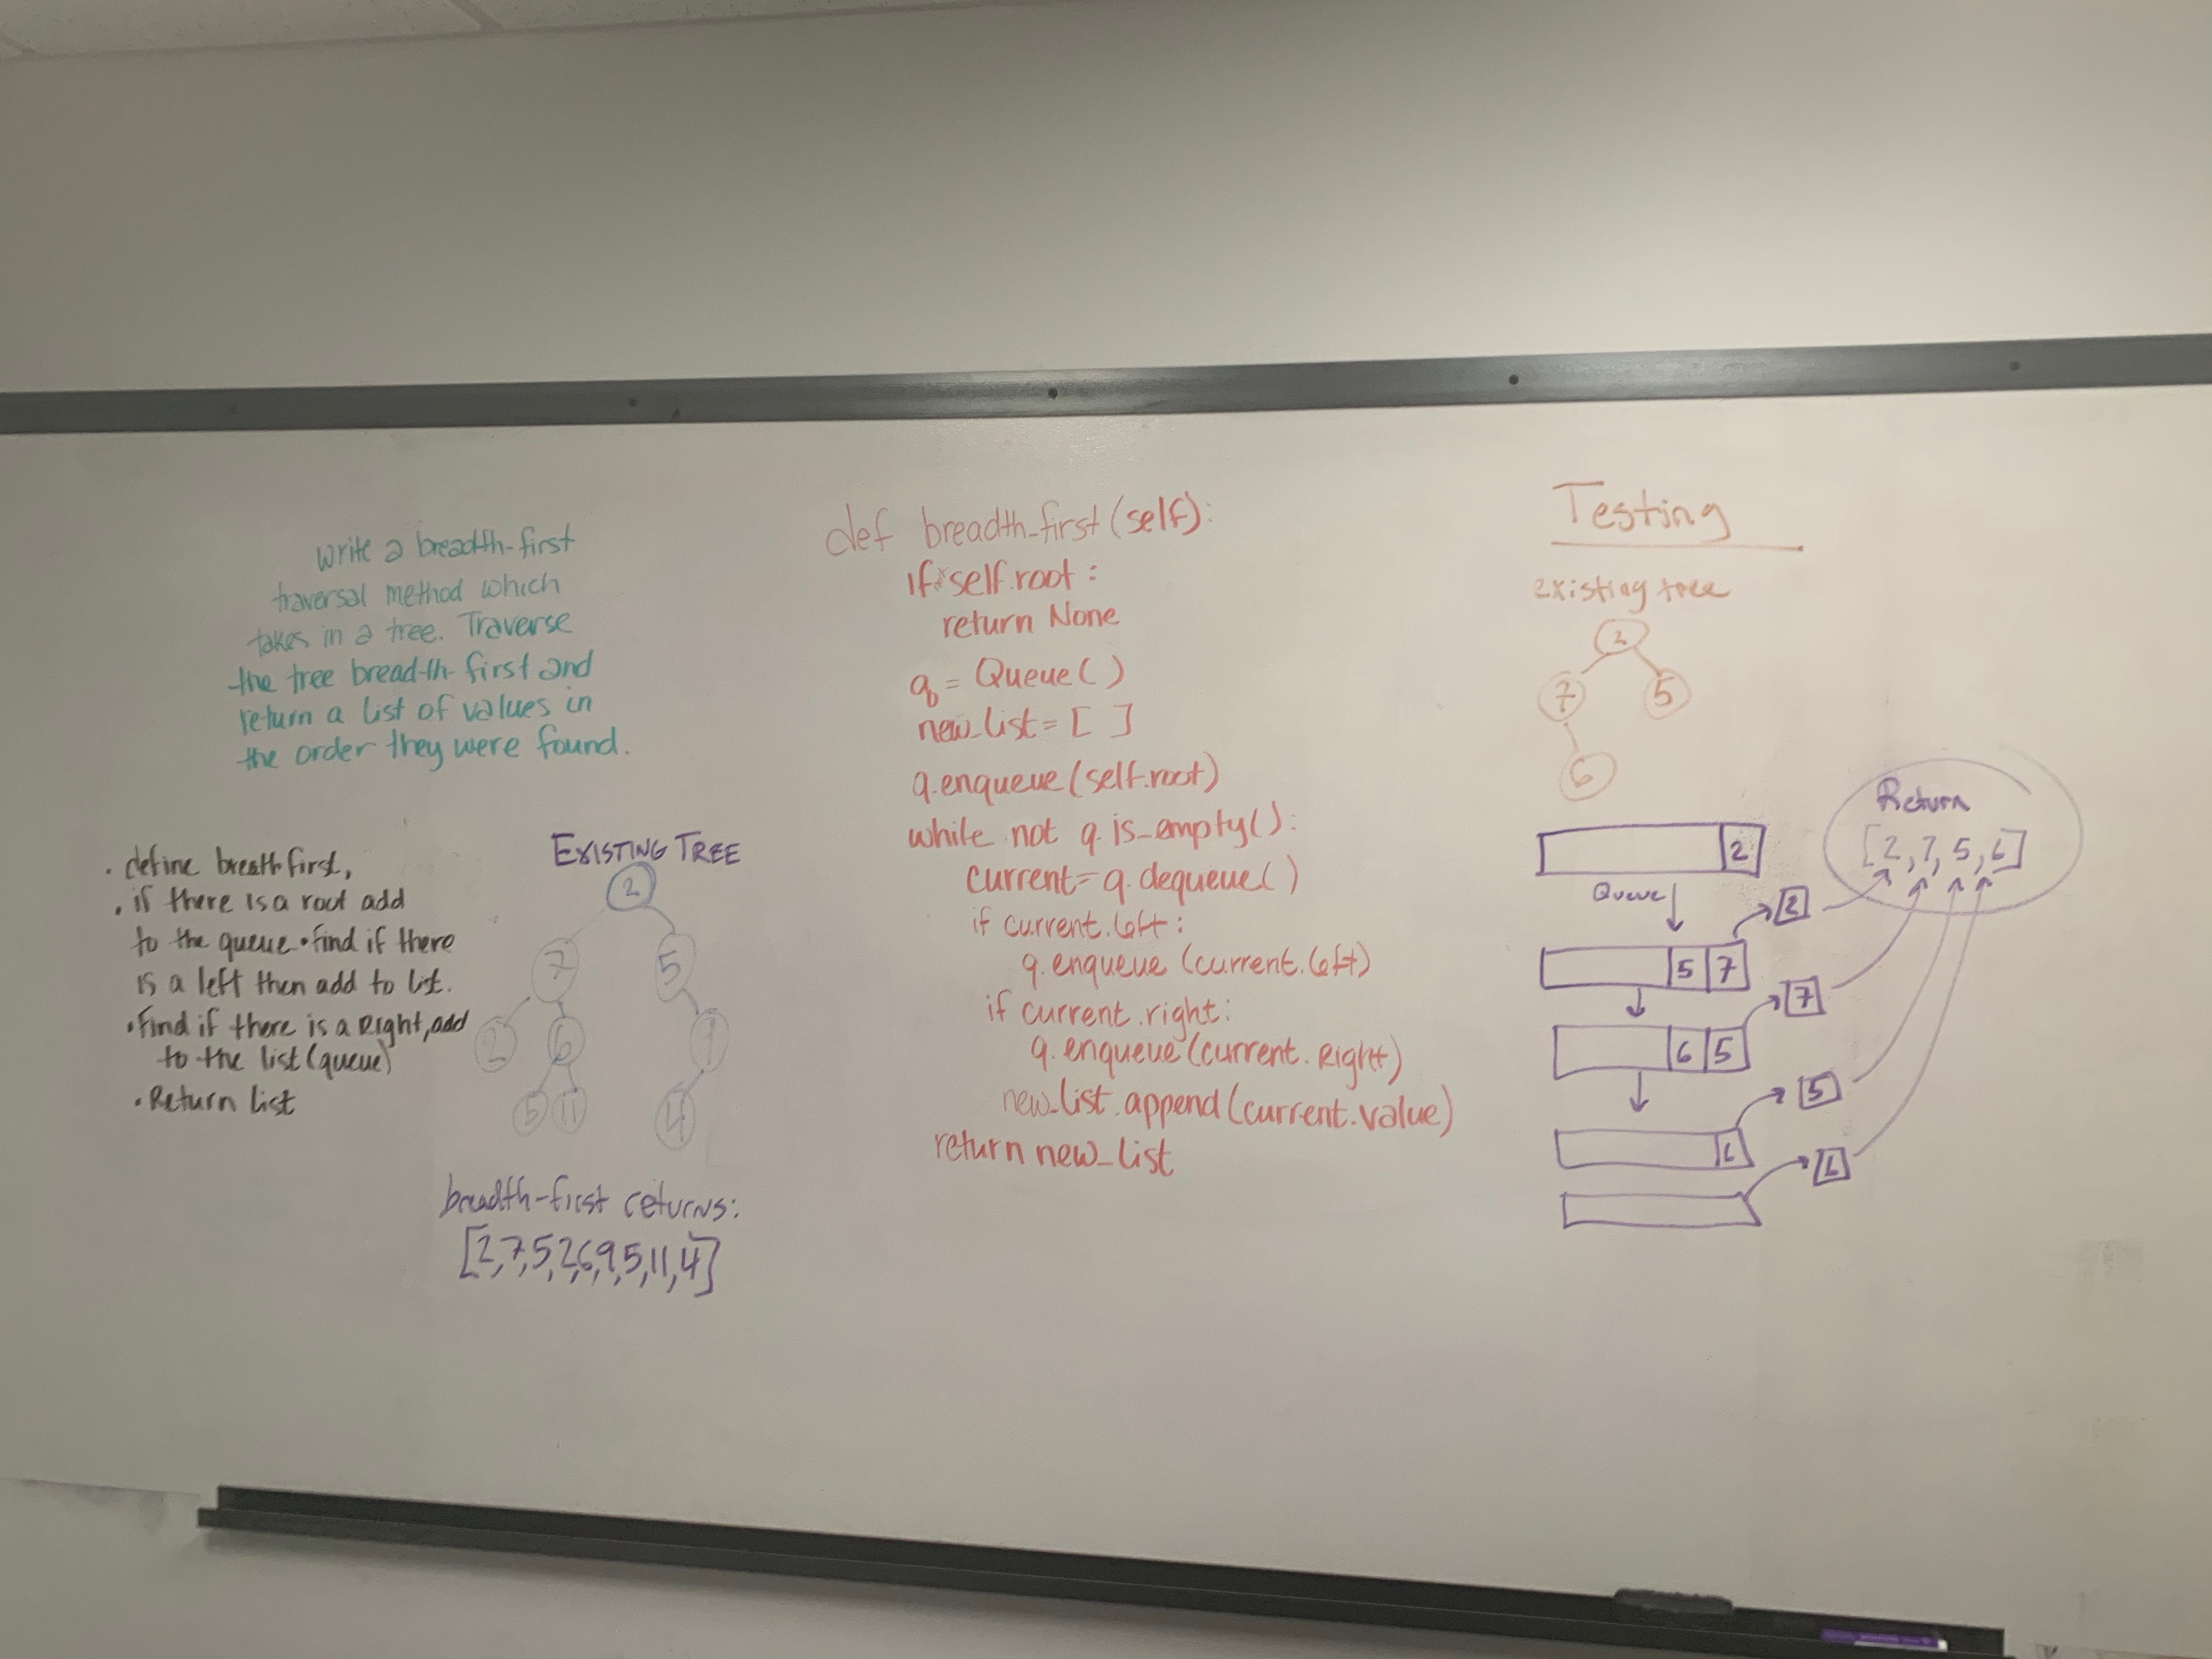 write a breadth-first
traversal method which
takes in a tree. Traverse
the tree breadth-first and
return a list of values in
the order they were found.
. define breathfirst,
. if there is a root add
to the queue • find if there
is a left then add to list.
• Find if there is a Right, add
to the list (queue)
• Return list
EXISTING TREE
2
7 5
2 6 9
5 11 4
breadth-first returns:
[2,7,5,2,6,9,5,11,4]
def breadth_first(self):
if self.root:
return None
q = Queue()
new_list = [ ]
q.enqueue(self.root)
while not q.is_empty():
current = q.dequeue()
if current.left:
q.enqueue(current.left)
if current.right:
q.enqueue(current.Right)
new_list.append(current.value)
return new_list
Testing
existing tree
2
7 5
6
Return
[2, 7, 5, 6]
2
Queue
2
5 7
7
6 5
5
6
6